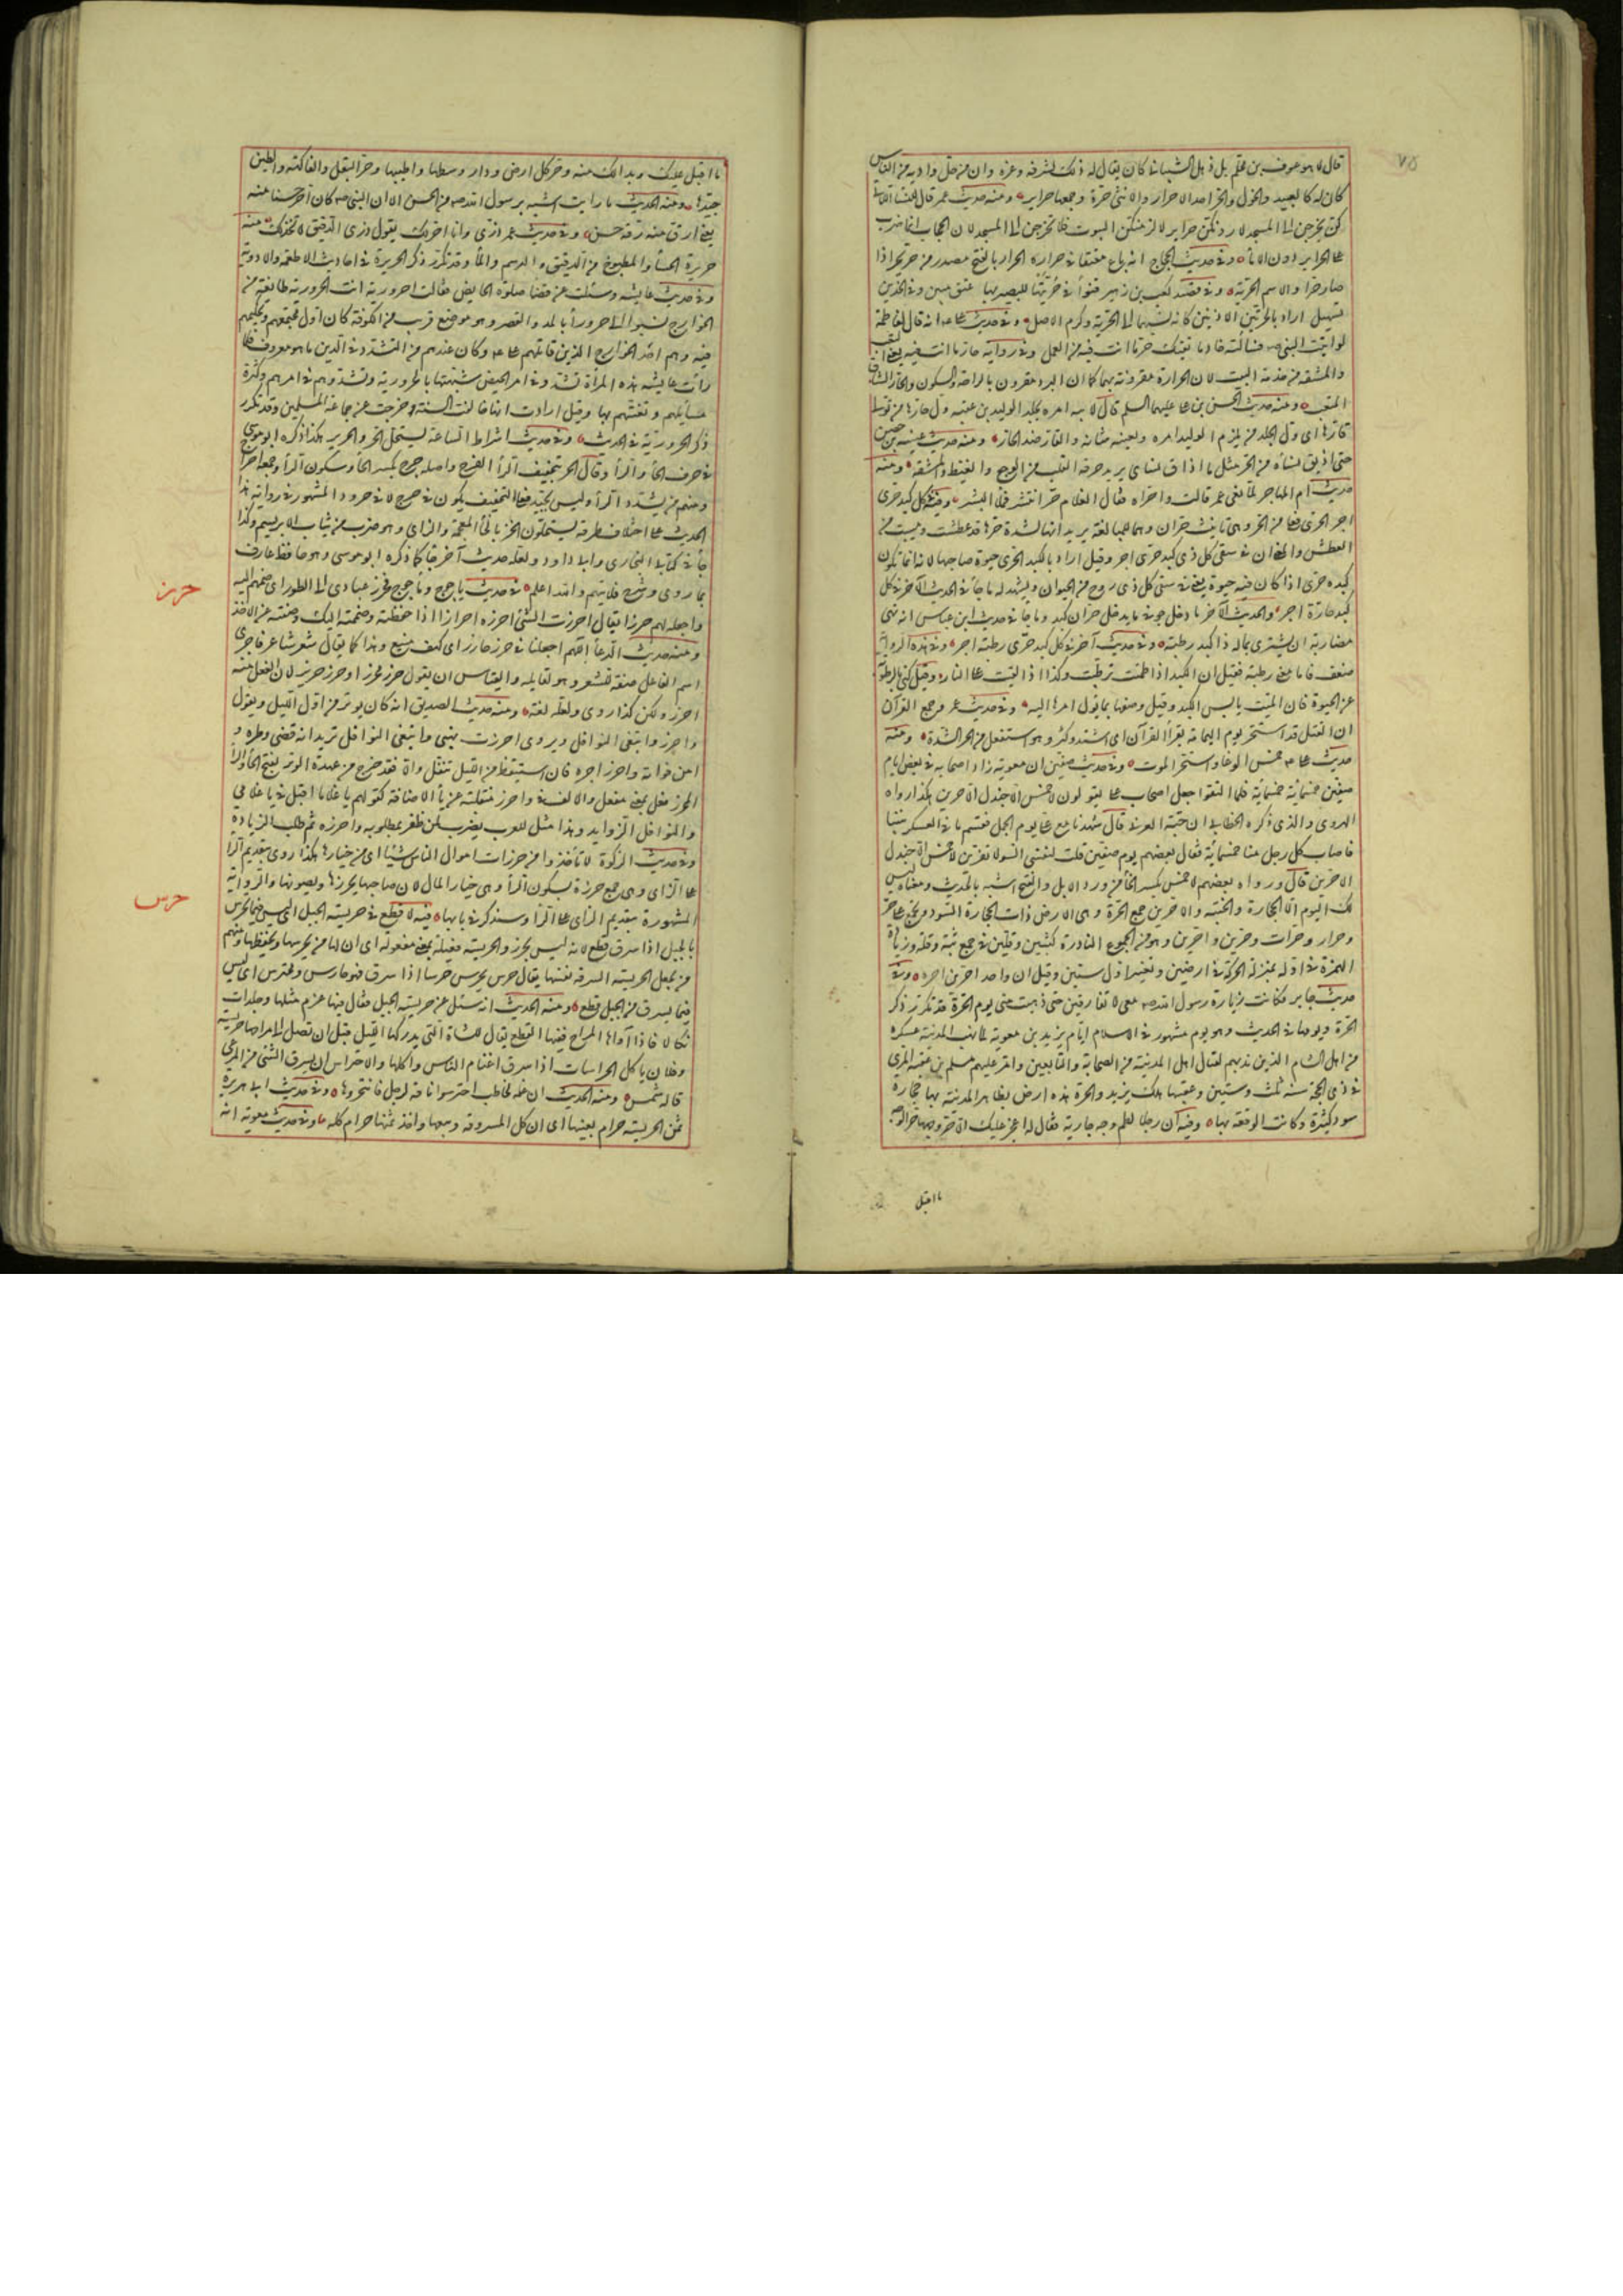 ٧٥
قال لا هو عوف بن محلم بن ذهل الشيباني كان يقال له ذلك لشرفه وعزه وان من حل واديه من الناس
كان له كالعبيد والخول والحر احد الاحرار والانثى حرة وجمعها حراير ومنه حديث عمر قال للنساء اللاتي
كن يخرجن الى المسجد لاردنكن حراير اى لالزمنكن البيوت فلا تخرجن الى المسجد لان الحجاب انما ضرب
على الحراير دون الاماء وفى حديث الحجاج انه باع معتقا فى حراره الحرار بالفتح مصدر من حر يحر اذا
صار حرا والاسم الحرية وفى قصيد كعب بن زهير قنوأ فى حرتيها للبصير بها عتق مبين وفى الخدين
تسهيل اراد بالحرتين الاذنين كانه نسبهما الى الحرية وكرم الاصل وفى حديث على انه قال لفاطمة
لو اتيت النبى فسألته خادما تقيك حر ما انت فيه من العمل وفى رواية حار ما انت فيه يعنى التعب
والمشقة من خدمة البيت لان الحرارة مقرونة بهما كما ان البرد مقرون بالراحة والسكون والحار الشاق
المتعب ومنه حديث الحسن بن على عليهما السلم قال لابيه لما امره بجلد الوليد بن عقبة ول حارها من تولى
قارها اى ول الجلد من يلزم الوليد امره ويعنيه شانه والقار ضد الحار ومنه حديث عيينه بن حصن
حتى اذيق نساه من الحر مثل ما اذاق نساى يريد حرقة القلب من الوجع والغيظ والمشقة ومنه
حديث ام المهاجر لما نعى عمر قالت واحراه فقال الغلام حر انتشر فملأ البشر وفيه فى كل كبد حرى
اجر الحرى فعلى من الحر وهى تانيث حران وهما للمبالغة يريد انها لشدة حرها قد عطشت ويبست من
العطش والمعنى ان فى سقى كل ذى كبد حرى اجر وقيل اراد بالكبد الحرى حيوة صاحبها لانه انما تكون
كبده حرى اذا كان فيه حيوة يعنى فى سقى كل ذى روح من الحيوان ويشهد له ما جاء فى الحديث الآخر فى كل
كبد حارة اجر والحديث الآخر ما دخل جوفى ما يدخل جوف حران كبد وما جاء فى حديث ابن عباس انه نهى
مضاربه ان يشترى بماله ذا كبد رطبة وفى حديث آخر فى كل كبد حرى رطبة اجر وفى هذه الرواية
ضعف فاما معنى رطبة فقيل ان الكبد اذا ظمئت ترطبت وكذا اذا القيت على النار وقيل كنى بالرطوبة
عن الحيوة فان الميت يابس الكبد وقيل وصفها بما يؤول امرها اليه وفى حديث عمر وجمع القرآن
ان القتل قد استحر يوم اليمامة بقرأ القرآن اى اشتد وكثر وهو استفعل من الحر الشدة ومنه
حديث على حمس الوغا واستحر الموت وفى حديث صفين ان معوية زاد اصحابه فى بعض ايام
صفين خمسمأية خمسمأية فلما التقوا جعل اصحاب على يقولون لا خمس الا جندل الاحرين هكذا رواه
الهروى والذى ذكره الخطابى ان حبة العرنى قال شهدنا مع على يوم الجمل فقسم ما فى العسكر بيننا
فاصاب كل رجل منا خمسمأية فقال بعضهم يوم صفين قلت لنفسى السوء لا تفرين لا خمس الا جندل
الاحرين قال ورواه بعضهم لا خمس بكسر الخأ من ورد الابل والفتح اشبه بالحديث ومعناه ليس
لك اليوم الا الحجارة والخيبة والاحرين جمع الحرة وهى الارض ذات الحجارة السود ويجمع على حر
وحرار وحرات وحرين واحرين وهو من الجموع النادرة كثبين وقلين فى جمع ثبة وقلة وزيادة
الهمزة فى اوله بمنزلة الحركة فى ارضين وتغيير اول سنين وقيل ان واحد احرين احره وفى
حديث جابر فكانت زيارة رسول الله معى لا تفارقنى حتى ذهبت منى يوم الحرة قد تكرر ذكر
الحرة ويومها فى الحديث وهو يوم مشهور فى الاسلام ايام يزيد بن معوية لما نهب المدينة عسكره
من اهل الشام الذين ندبهم لقتال اهل المدينة من الصحابة والتابعين وامر عليهم مسلم بن عقبة المرى
فى ذى الحجة سنة ثلث وستين وعقبها هلك يزيد والحرة هذه ارض بظاهر المدينة بها حجارة
سود كثيرة وكانت الوقعة بها وفيه ان رجلا لطم وجه جارية فقال له اعجز عليك الا حر وجهها حر الوجه
ما اقبل
ما اقبل عليك وبدا لك منه وحر كل ارض ودار وسطها واطيبها وحر البقل والفاكهة والطين
جيدها ومنه الحديث ما رايت اشبه برسول الله من الحسن الا ان النبى كان احر حسنا منه
يعنى ارق منه رقة حسن وفى حديث عمر ذرى وانا احر لك يقول ذرى الدقيق لاتخذ لك منه
حريرة الحسأ المطبوخ من الدقيق والدسم والمأ وقد تكرر ذكر الحريرة فى احاديث الاطعمة والادوية
وفى حديث عايشه وسئلت عن قضأ صلوة الحايض فقالت احرورية انت الحرورية طايفة من
الخوارج نسبوا الى حرورأ بالمد والقصر وهو موضع قريب من الكوفة كان اول مجتمعهم وتحكيمهم
فيه وهم احد الخوارج الذين قاتلهم على وكان عندهم من التشدد فى الدين ما هو معروف فلما
رأت عايشه هذه المرأة تشدد فى امر الحيض شبهتها بالحرورية وتشددهم فى امرهم وكثرة
مسايلهم وتعنتهم بها وقيل ارادت انها خالفت السنة وخرجت عن جماعة المسلمين وقد تكرر
ذكر الحرورية فى الحديث وفى حديث اشراط الساعة يستحل الحر والحرير هكذا ذكره ابو موسى
فى حرف الحأ والرأ وقال الحر بتخفيف الرأ الفرج واصله حرح بكسر الحأ وسكون الرأ وجمعه احراح
ومنهم من يشدد الرأ وليس بجيد فعلى التخفيف يكون فى حرح لا فى حرر والمشهور فى رواية هذا
الحديث على اختلاف طرقه يستحلون الخز بالخأ المعجمة والزاى وهو ضرب من ثياب الابريسم وكذا
جأ فى كتابى البخارى وابى داود ولعله حديث آخر جأ كما ذكره ابو موسى وهو حافظ عارف
بما روى وشرح فلا يتهم والله اعلم فى حديث ياجوج وماجوج فحرز عبادى الى الطور اى ضمهم اليه
حرز
واجعله لهم حرزا يقال احرزت الشئ احرزه احرازا اذا حفظته وضممته اليك وصنته عن الاخذ
ومنه حديث الدعأ اللهم اجعلنا فى حرز حارز اى كهف منيع وهذا كما يقال شعر شاعر فاجرى
اسم الفاعل صفة للشعر وهو لقايله والقياس ان يقول حرز محرز او حرز حريز لان الفعل منه
احرز ولكن كذا روى ولعله لغة ومنه حديث الصديق انه كان يوتر من اول الليل ويقول
واحرزا وابتغى النوافل ويروى احرزت نهبى وابتغى النوافل تريد انه قضى وطره و
امن فواته واحرز اجره فان استيقظ من الليل تنفل والا فقد خرج من عهدة الوتر بفتح الحأ والرأ
الحرز فعل بمعنى مفعل والالف فى واحرزا منقلبة عن يأ الاضافة كقولهم يا غلاما اقبل فى يا غلامى
والنوافل الزوايد وهذا مثل للعرب يضرب لمن ظفر بمطلوبه واحرزه ثم طلب الزيادة
وفى حديث الزكوة لا تأخذوا من حرزات اموال الناس شيئا اى من خيارها هكذا روى بتقديم الرأ
على الزاى وهى جمع حرزة بسكون الرأ وهى خيار المال لان صاحبها يحرزها ويصونها والرواية
المشهورة بتقديم الزاى على الرأ وسنذكر فى بابها فيه لا قطع فى حريسة الجبل اى ليس فيما يحرس
حرس
بالجبل اذا سرق قطع لانه ليس بحرز والحريسة فعيلة بمعنى مفعولة اى ان لها من يحرسها ويحفظها ومنهم
من يجعل الحريسة السرقة نفسها يقال حرس يحرس حرسا اذا سرق فهو حارس ومحترس اى ليس
فيما يسرق من الجبل قطع ومنه الحديث انه سئل عن حريسة الجبل فقال فيها غرم مثلها وجلدات
نكالا فاذا آواها المراح ففيها القطع يقال للشاة التى يدركها الليل قبل ان تصل الى مراحها حريسة
وفلان ياكل الحراسات اذا سرق اغنام الناس واكلها والاحتراس ان يسرق الشئ من المرعى
قاله شمر ومنه الحديث ان غلمة لحاطب احترسوا ناقة لرجل فانتحروها وفى حديث ابى هريره
ثمن الحريسة حرام بعينها اى ان كل المسروقة وبيعها واخذ ثمنها حرام كله وفى حديث معوية انه